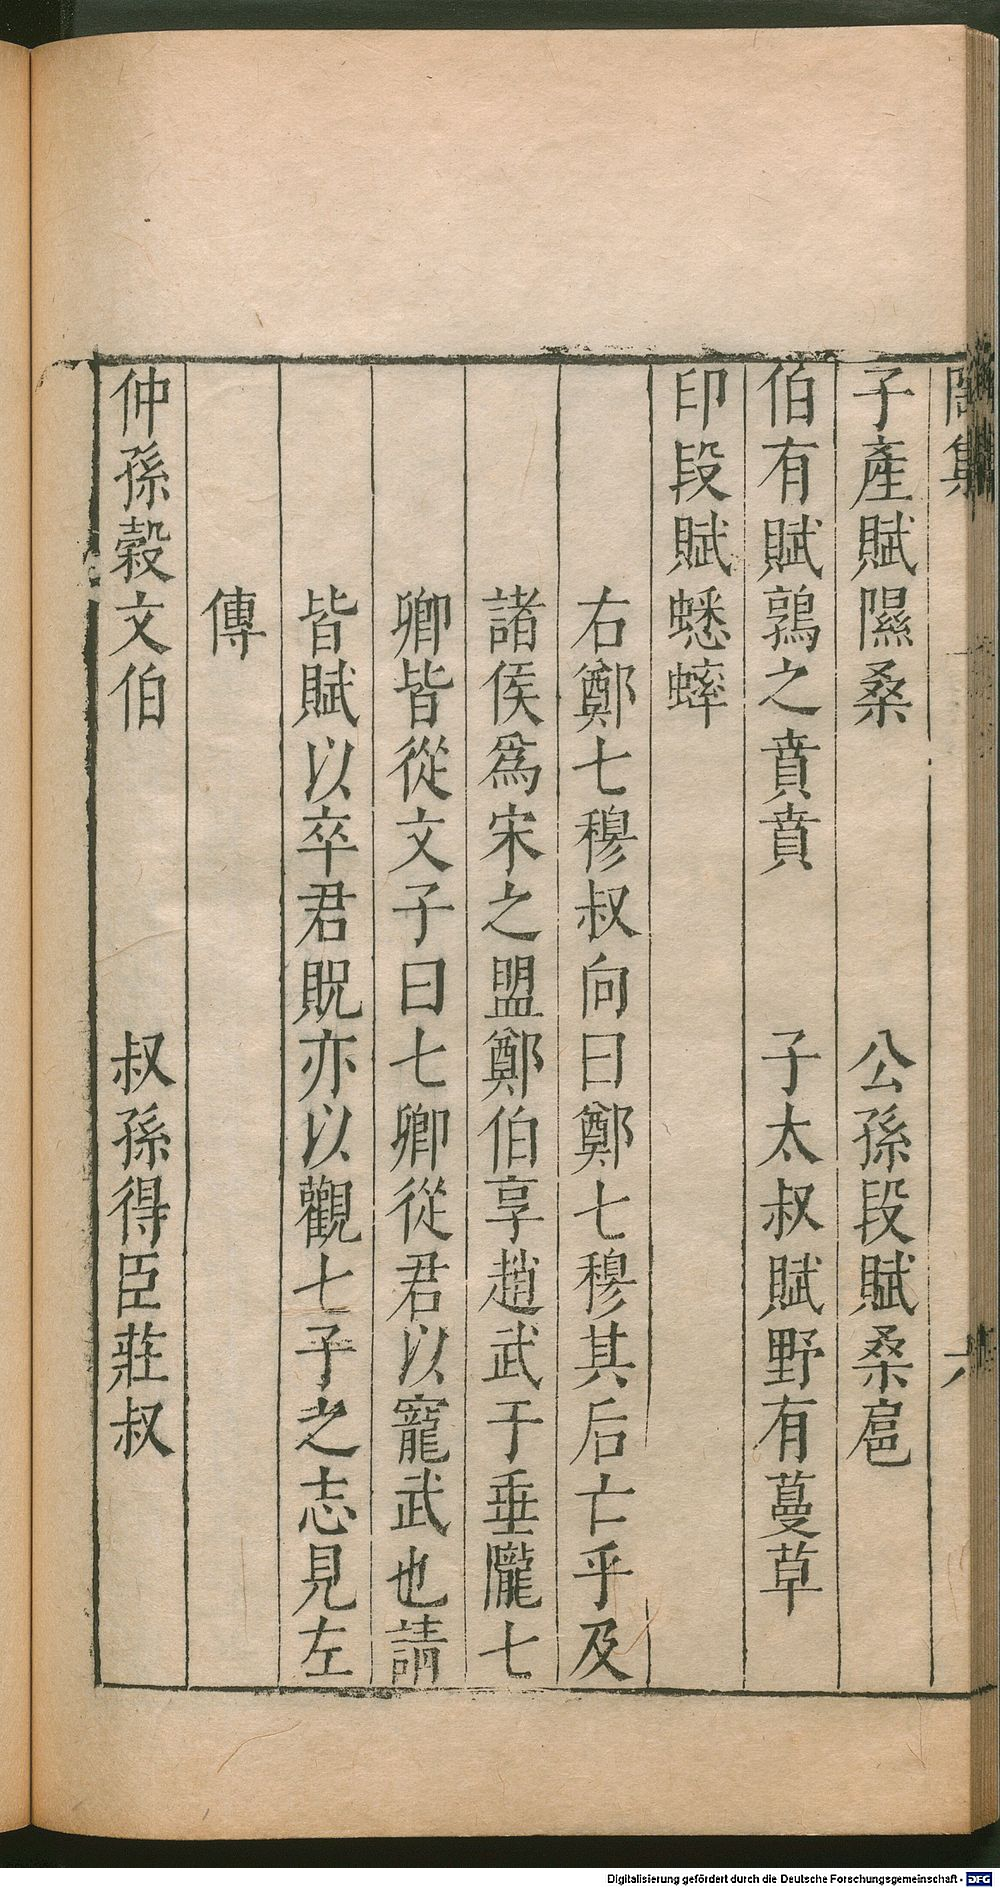 子產賦隰桑　公孫段賦桑扈
伯有賦鶉之賁賁　子太叔賦野有蔓草
印段賦蟋蟀
右鄭七穆叔向曰鄭七穆其后亡乎及
諸侯爲宋之盟鄭伯享趙武于垂隴七
卿皆從文子曰七卿從君以寵武也請
皆賦以卒君貺亦以觀七子之志見左
傳
仲孫穀文伯　叔孫得臣莊叔
Digitalisierung gefördert durch die Deutsche Forschungsgemeinschaft - DFG